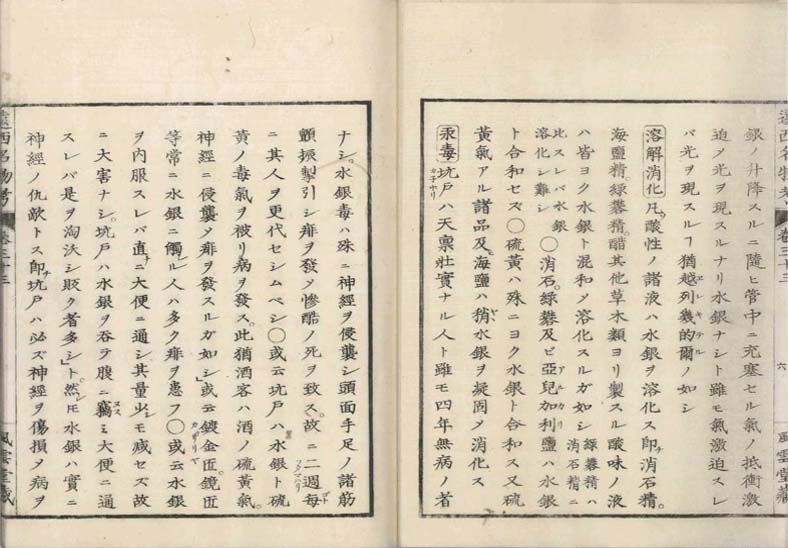 遠西名物考
卷三十三
六
風雲堂藏
銀ノ升降スルニ隨ヒ管中ニ充塞セル氣ノ抵衝激
迫メ光ヲ現スルナリ水銀ナシト雖モ氣激迫スレ
バ光ヲ現スルヿ猶越列幾的爾ノ如シ
溶解消化 凡ソ酸性ノ諸液ハ水銀ヲ溶化ス即チ消石精。
海鹽精。綠礬精。醋其他草木類ヨリ製スル酸味ノ液
ハ皆ヨク水銀ト混和メ溶化スルガ如シ 綠礬精ハ消石精ニ
比スレバ水銀溶化シ難シ ○消石。綠礬及ビ亞兒加利鹽ハ水銀
ト合和セズ○硫黃ハ殊ニヨク水銀ト合和ス又硫
黃氣アル諸品及ビ海鹽ハ稍水銀ヲ凝固メ消化ス
汞毒 坑戸ハ天禀壯實ナル人ト雖モ四年無病ノ者
ナシ。水銀毒ハ殊ニ神經ヲ侵襲シ頭面手足ノ諸筋
顫振掣引シ痱ヲ發メ慘酷ノ死ヲ致ス。故ニ二週每
ニ其人ヲ更代セシムベシ○或云坑戸ハ水銀ト硫
黃ノ毒氣ヲ被リ病ヲ發ス。此猶酒客ハ酒ノ硫黃氣。
神經ニ侵襲メ痱ヲ發スルガ如シ」或云鍍金匠。鏡匠
等常ニ水銀ニ觸ルヽ人ハ多ク痱ヲ患フ○或云水銀
ヲ內服スレバ直チニ大便ニ通シ其量少シモ减セズ故
ニ大害ナシ。坑戸ハ水銀ヲ呑テ腹ニ竊ミ大便ニ通
スレバ是ヲ淘汰シ販ク者多シ」ト。然レ𪜈水銀ハ實ニ
神經ノ仇敵トス即チ坑戸ハ必ズ神經ヲ傷損メ病ヲ
遠西名物考
卷三十三
風雲堂藏